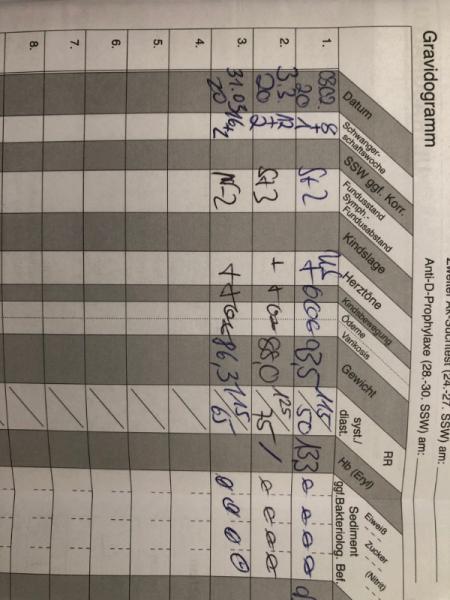 Zweiter AK-Suchtest (24.-27. SSW) am:
Gravidogramm
Anti-D-Prophylaxe (28.-30. SSW) am:
Datum
Schwanger-
schaftswoche
SSW ggf. Korr.
Fundusstand
Symph.-
Fundusabstand
Kindslage
Herztöne
Kindsbewegung
Ödeme
Varikosis
Gewicht
RR
syst./
diast.
Hb (Ery)
Sediment
ggf. Bakteriolog. Bef.
Eiweiß
Zucker
(Nitrit)
1. 20 S+2 + 93,5 115/50 133
2. 3.3. 20 S+3 + + 88,0 125/75 /
3. 31.03. 20 N-2 + + 86,3 115/65
4.
5.
6.
7.
8.